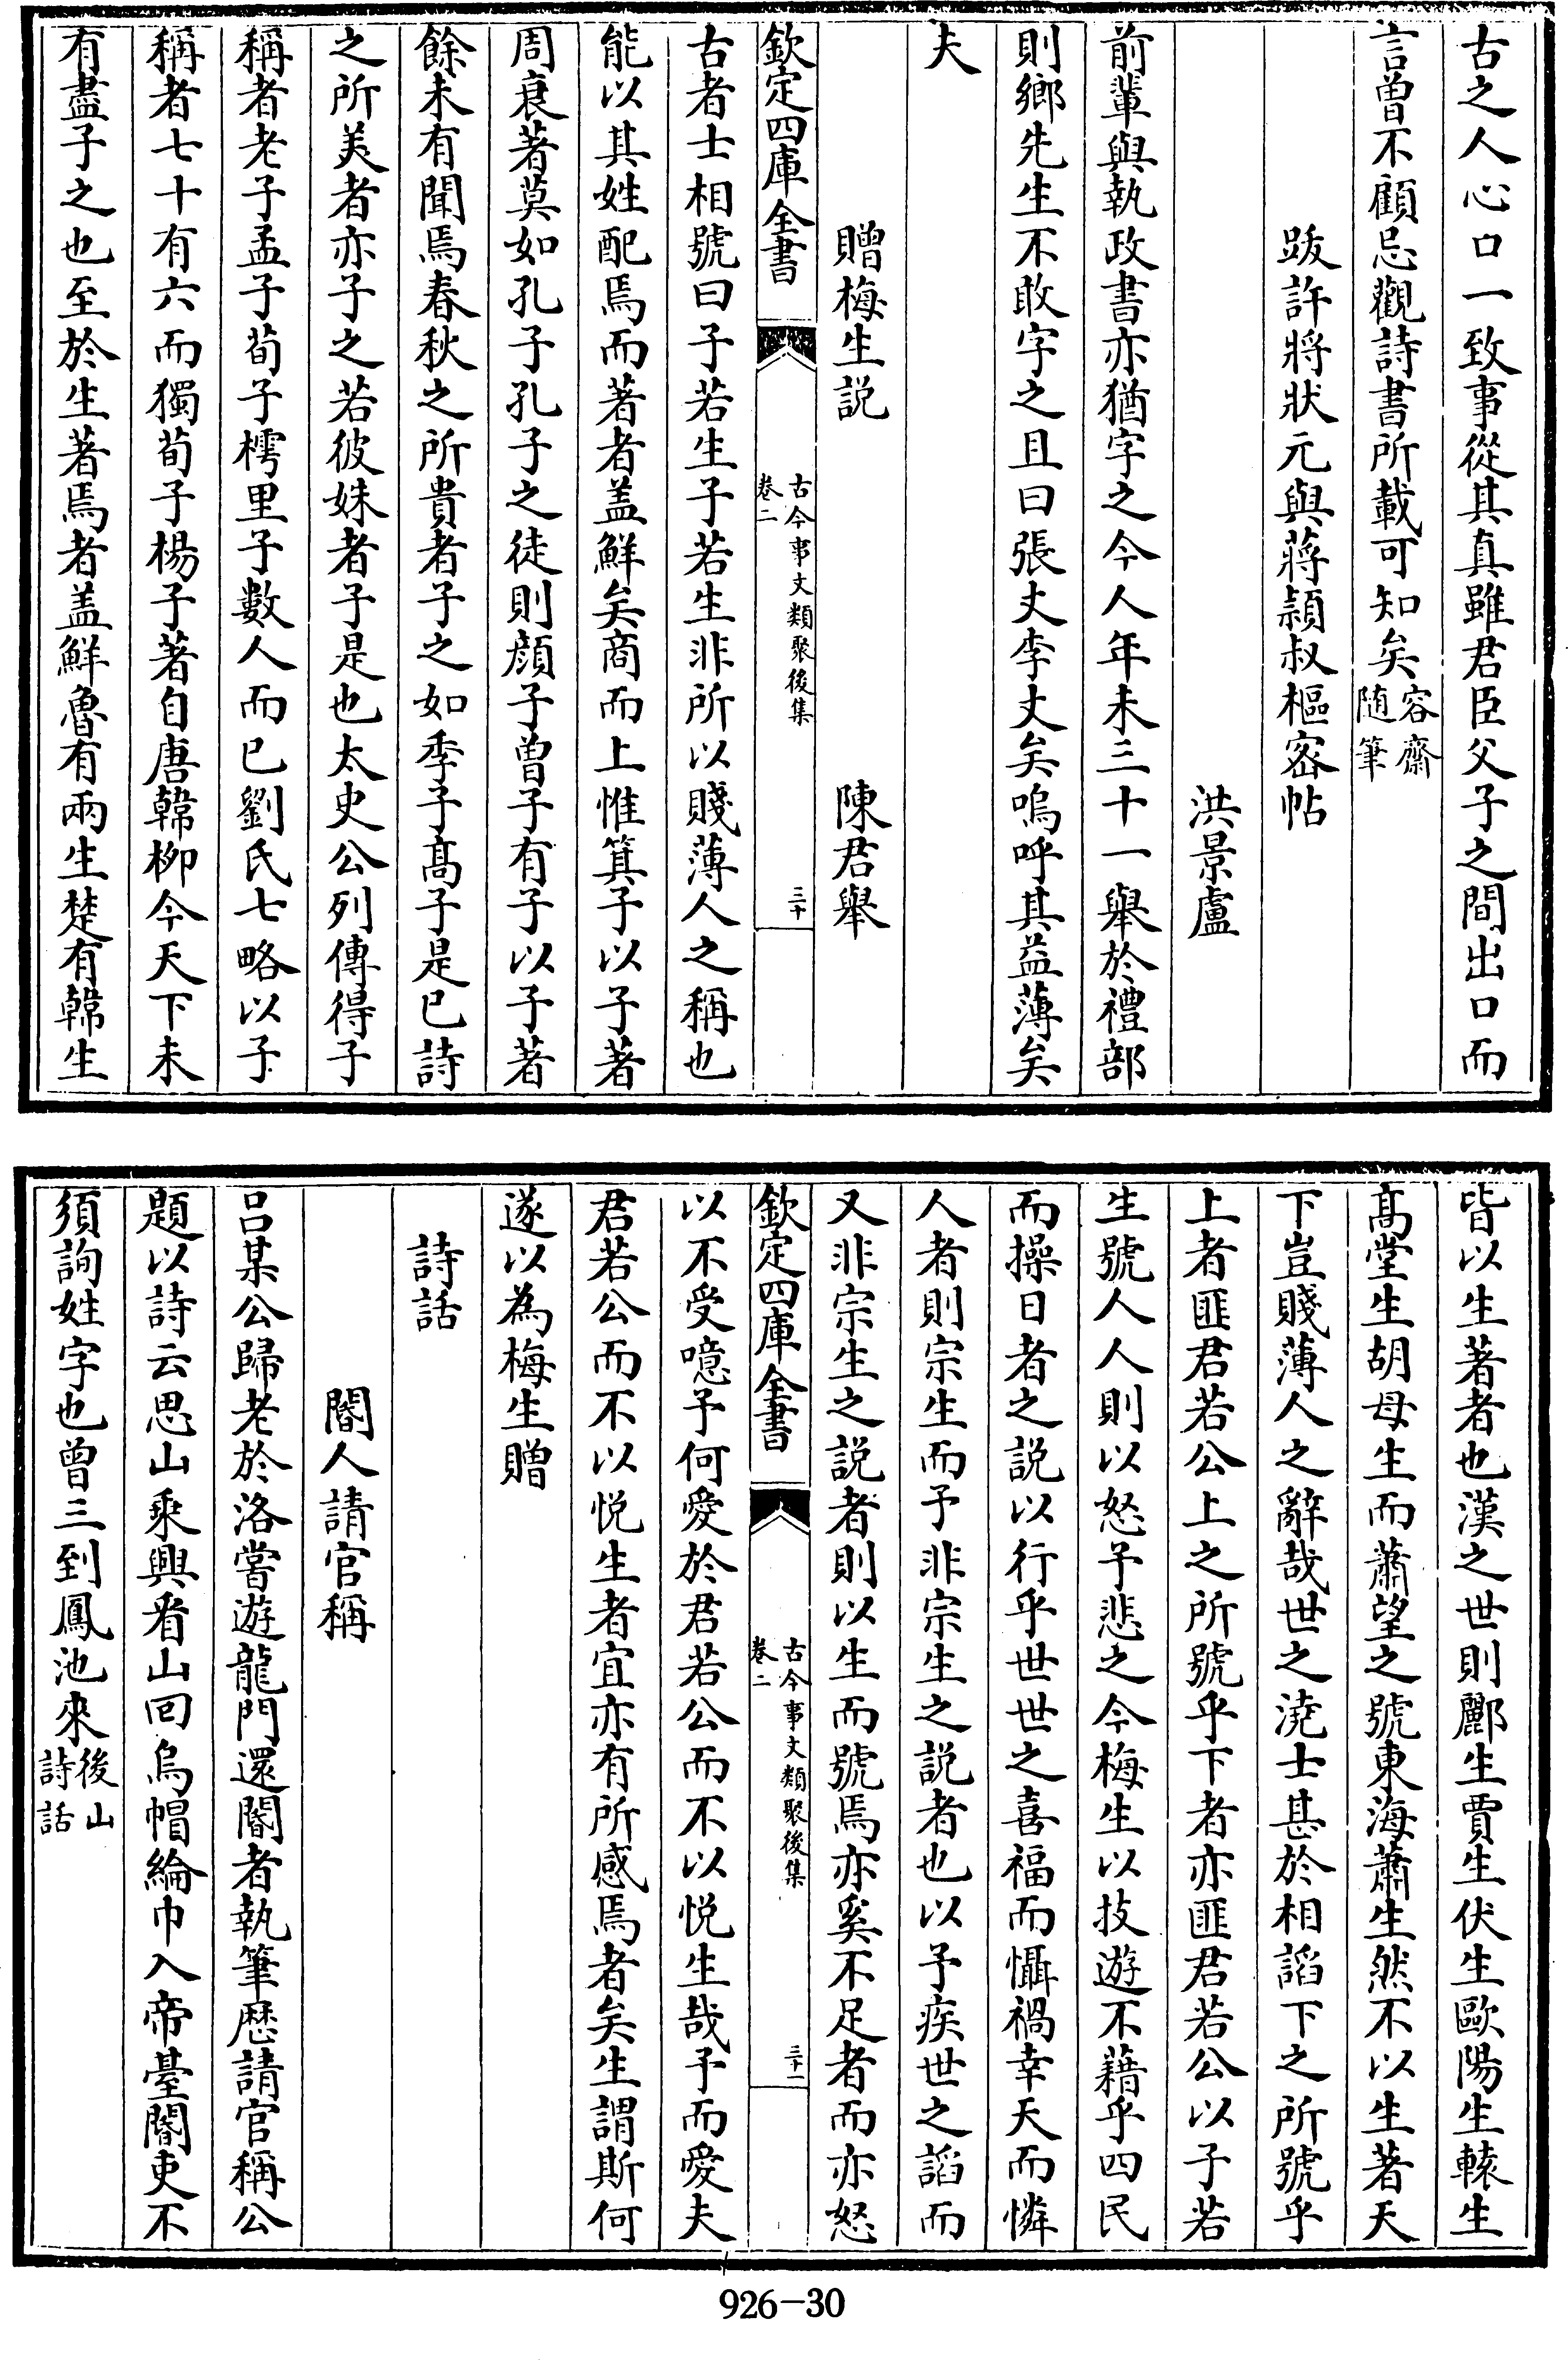 古之人心口一致事從其真雖君臣父子之間出口而
言曾不顧忌觀詩書所載可知矣容齋隨筆
跋許將狀元與蔣頴叔樞宻帖
洪景盧
前輩與執政書亦猶字之今人年未三十一舉於禮部
則鄉先生不敢字之且曰張丈李丈矣嗚呼其益薄矣
夫
贈梅生説 陳君舉
欽定四庫全書 古今事文類聚後集 卷二 三十
古者士相號曰子若生子若生非所以賤薄人之稱也
能以其姓配焉而著者盖鮮矣商而上惟箕子以子著
周衰著莫如孔子孔子之徒則顔子曾子有子以子著
餘未有聞焉春秋之所貴者子之如季子髙子是已詩
之所美者亦子之若彼姝者子是也太史公列傳得子
稱者老子孟子荀子樗里子數人而已劉氏七略以子
稱者七十有六而獨荀子楊子著自唐韓栁今天下未
有盡子之也至於生著焉者盖鮮魯有兩生楚有韓生
皆以生著者也漢之世則酈生賈生伏生歐陽生轅生
髙堂生胡母生而蕭望之號東海蕭生然不以生著天
下豈賤薄人之辭哉世之澆士甚於相謟下之所號乎
上者匪君若公上之所號乎下者亦匪君若公以子若
生號人人則以怒予悲之今梅生以技遊不藉乎四民
而操日者之説以行乎世世之喜福而懾禍幸天而憐
人者則宗生而予非宗生之説者也以予疾世之謟而
又非宗生之説者則以生而號焉亦奚不足者而亦怒
欽定四庫全書 古今事文類聚後集 卷二 三十一
以不受噫予何愛於君若公而不以悦生哉予而愛夫
君若公而不以悦生者宜亦有所感焉者矣生謂斯何
遂以為梅生贈
詩話
閽人請官稱
吕某公歸老於洛嘗遊龍門還閽者執筆歴請官稱公
題以詩云思山乗興㸔山回烏帽綸巾入帝臺閽吏不
須詢姓字也曾三到鳳池來後山詩話
926-30